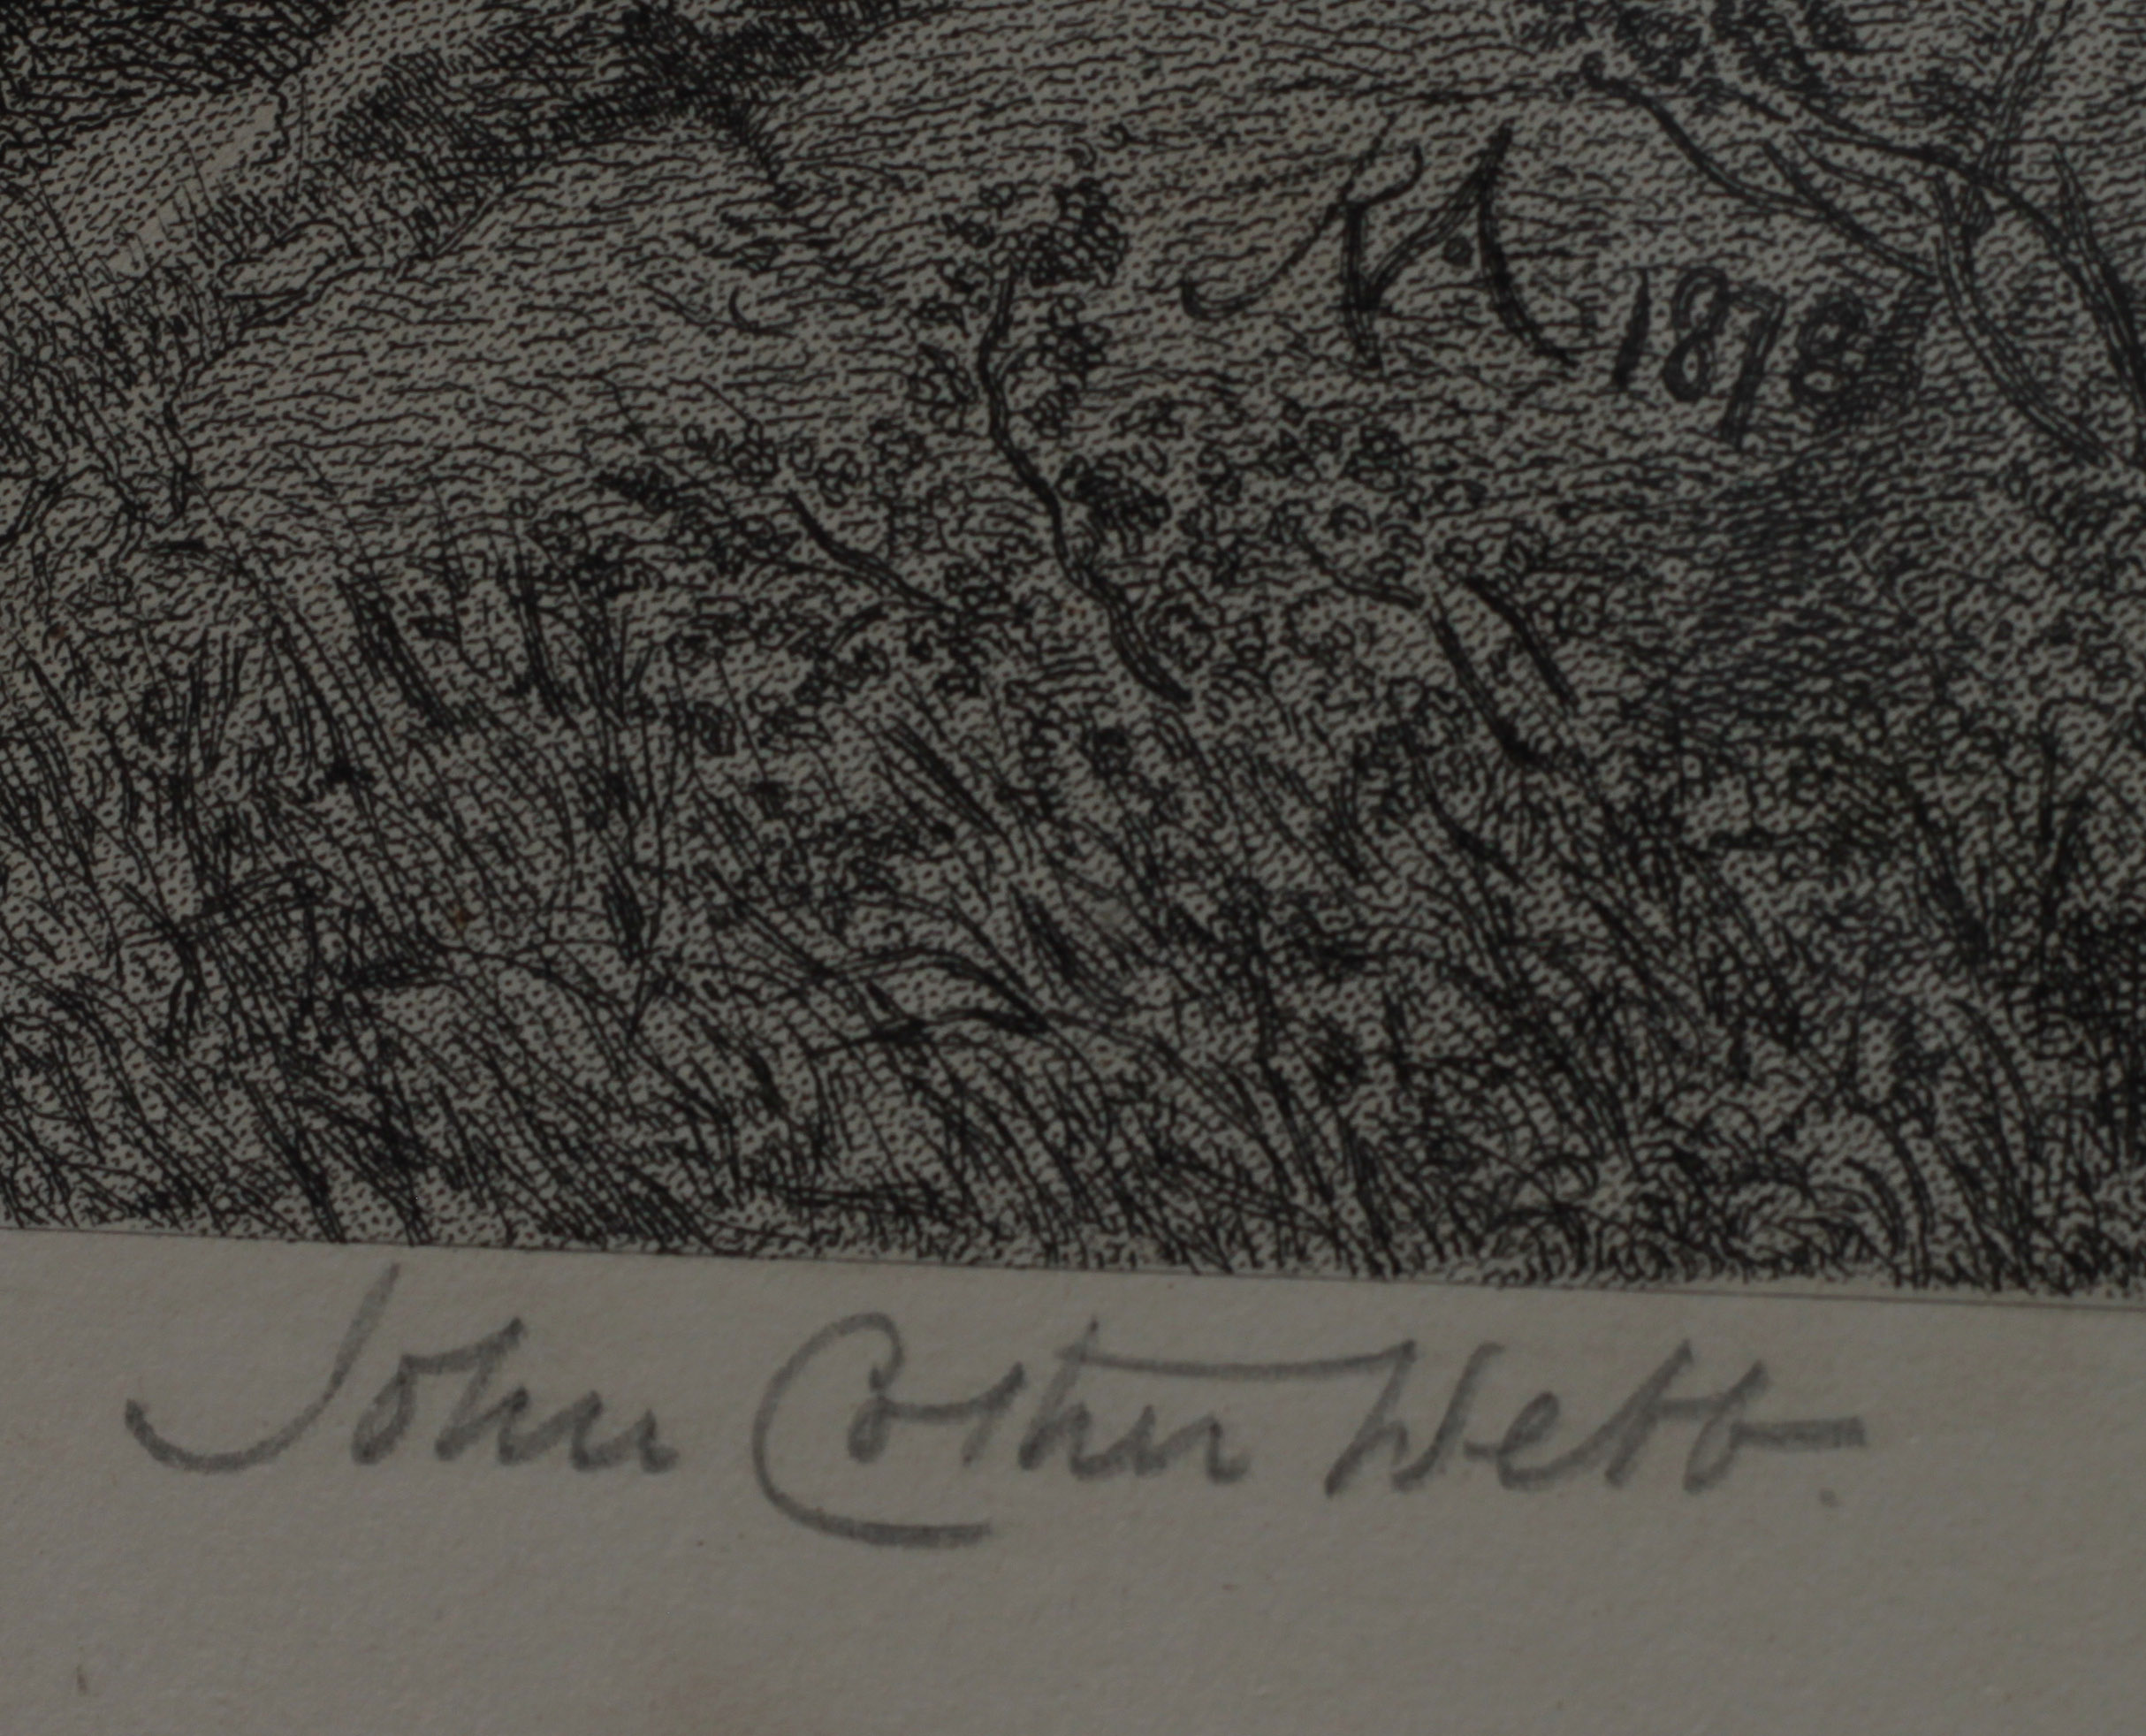 1878
John Cother Webb.